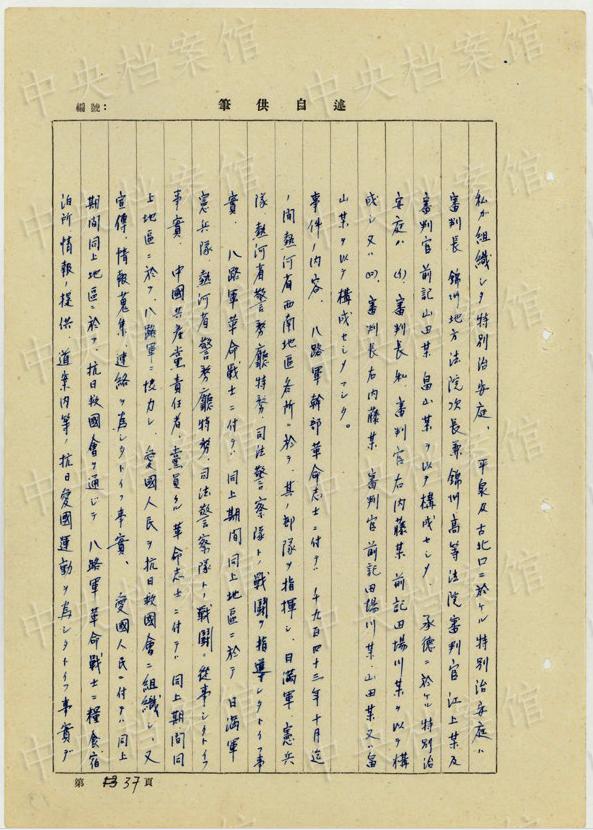 述自供筆
編號：
私ガ組織シタ特別治安庭、平泉及古北口ニ於ケル特別治安庭ハ
審判長 錦州地方法院次長兼錦州高等法院審判官 江上某及
審判官前記山田某 畠山某ヲ以テ構成セシタ、承德ニ於ケル特別治
安庭ハ(イ)、審判長私 審判官右内藤某 前記田場川某ヲ以テ構
成シ又ハ(ロ)、審判長右内藤某、審判官前記田場川某、山田某又ハ畠
山某ヲ以テ構成セシタノデシタ。
事件ノ内容、八路軍幹部革命志士ニ付テハ千九百四十三年十月迄
ノ間熱河省西南地區各所ニ於テ、其ノ部隊ヲ指揮シ、日満軍、憲兵
隊、熱河省警務廳特務、司法警察隊トノ戰鬪ヲ指導シタトイフ事
實、八路軍革命戰士ニ付テハ同上期間同上地區ニ於テ日満軍
憲兵隊、熱河省警務廳特務、司法警察隊トノ戰鬪ニ從事シタトイフ
事實、中國共産黨責任者、黨員タル革命志士ニ付テハ同上期間同
上地區ニ於テ八路軍ニ協力シ、愛國人民ヲ抗日救國會ニ組織シ、又
宣傳、情報蒐集、連絡ヲ為シタトイフ事實、愛國人民ニ付テハ同上
期間同上地區ニ於テ、抗日救國會ヲ通ジテ八路軍革命戰士ニ糧食、宿
泊所、情報ノ提供、道案内等ノ抗日愛國運動ヲ為シタトイフ事實デ
第 37 頁
中央档案馆